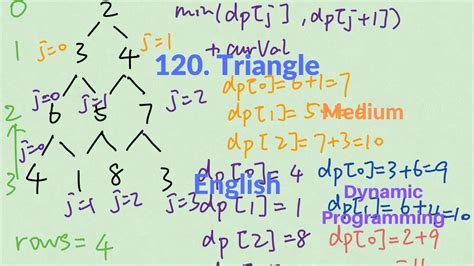 0 2 min(dp[j], dp[j+1])
j=0 3 4 j=1 + curVal
120. Triangle
j=0 j=1 j=2 dp[0]=6+1=7
2 6 5 7 dp[1]=5+1
Medium
j=0 dp[2]=7+3=10
3 4 1 8 3 dp[0]=4 dp[0]=3+6=9
English
Dynamic
j=1 j=2 j=3 dp[1]=1 dp[1]=
Programming
rows=4 dp[2]=8 dp[0]=2+9
dp[3]=3 =11